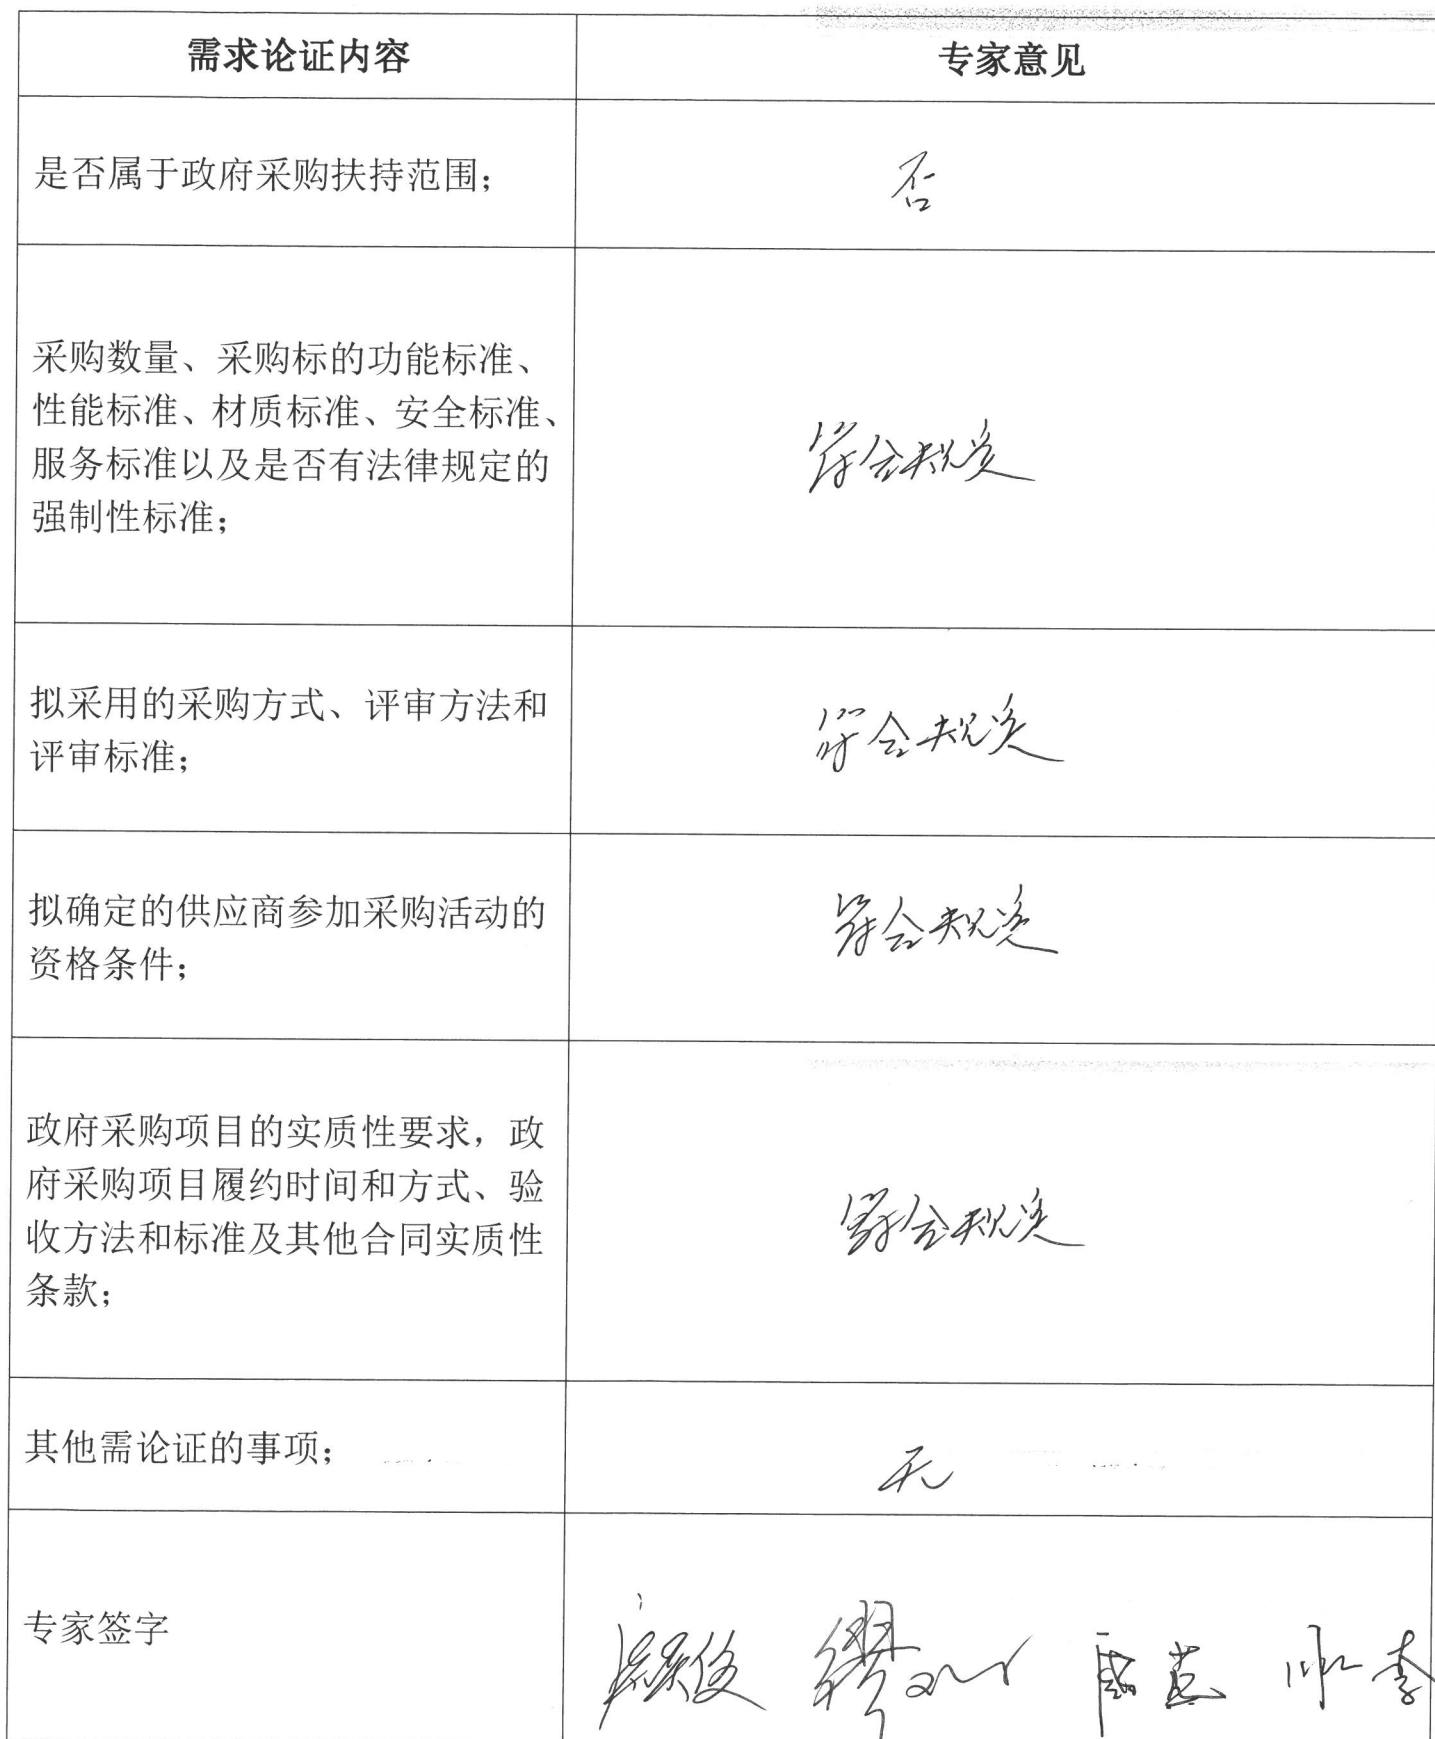 需求论证内容
专家意见
是否属于政府采购扶持范围；
否
采购数量、采购标的功能标准、
性能标准、材质标准、安全标准、
服务标准以及是否有法律规定的
强制性标准；
符合规定
拟采用的采购方式、评审方法和
评审标准；
符合规定
拟确定的供应商参加采购活动的
资格条件；
符合规定
政府采购项目的实质性要求，政
府采购项目履约时间和方式、验
收方法和标准及其他合同实质性
条款；
符合规定
其他需论证的事项；
无
专家签字